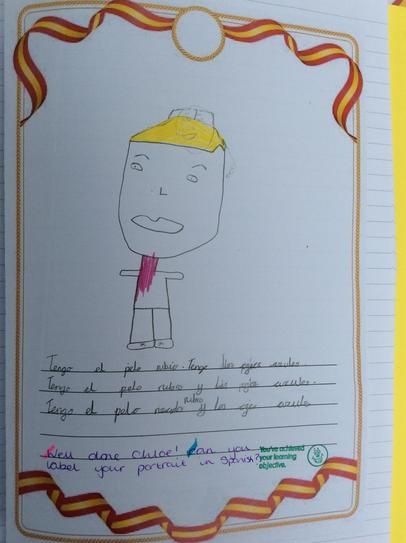 Tengo el pelo rubio. Tengo los ojos azules
Tengo el pelo rubio y los ojos azules.
rubio
Tengo el pelo y los ojos azules
Well done Chloe! Can you
label your portrait in Spanish?
You've achieved
your learning
objective.